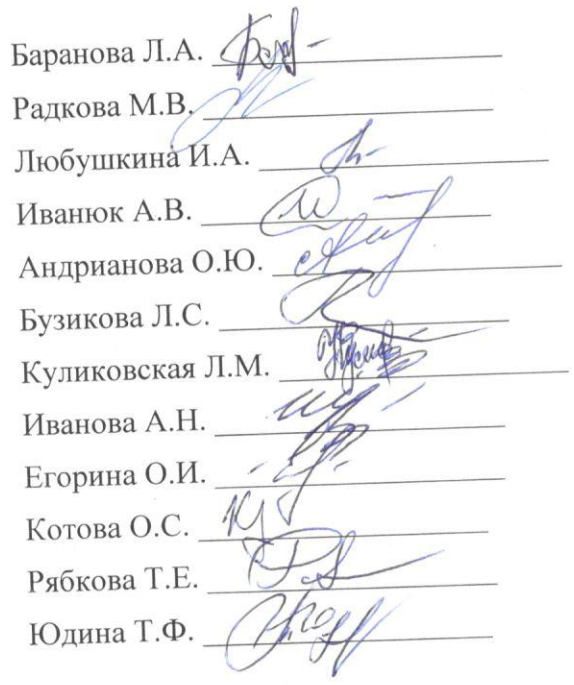 Баранова Л.А.
Радкова М.В.
Любушкина И.А.
Иванюк А.В.
Андрианова О.Ю.
Бузикова Л.С.
Куликовская Л.М.
Иванова А.Н.
Егорина О.И.
Котова О.С.
Рябкова Т.Е.
Юдина Т.Ф.